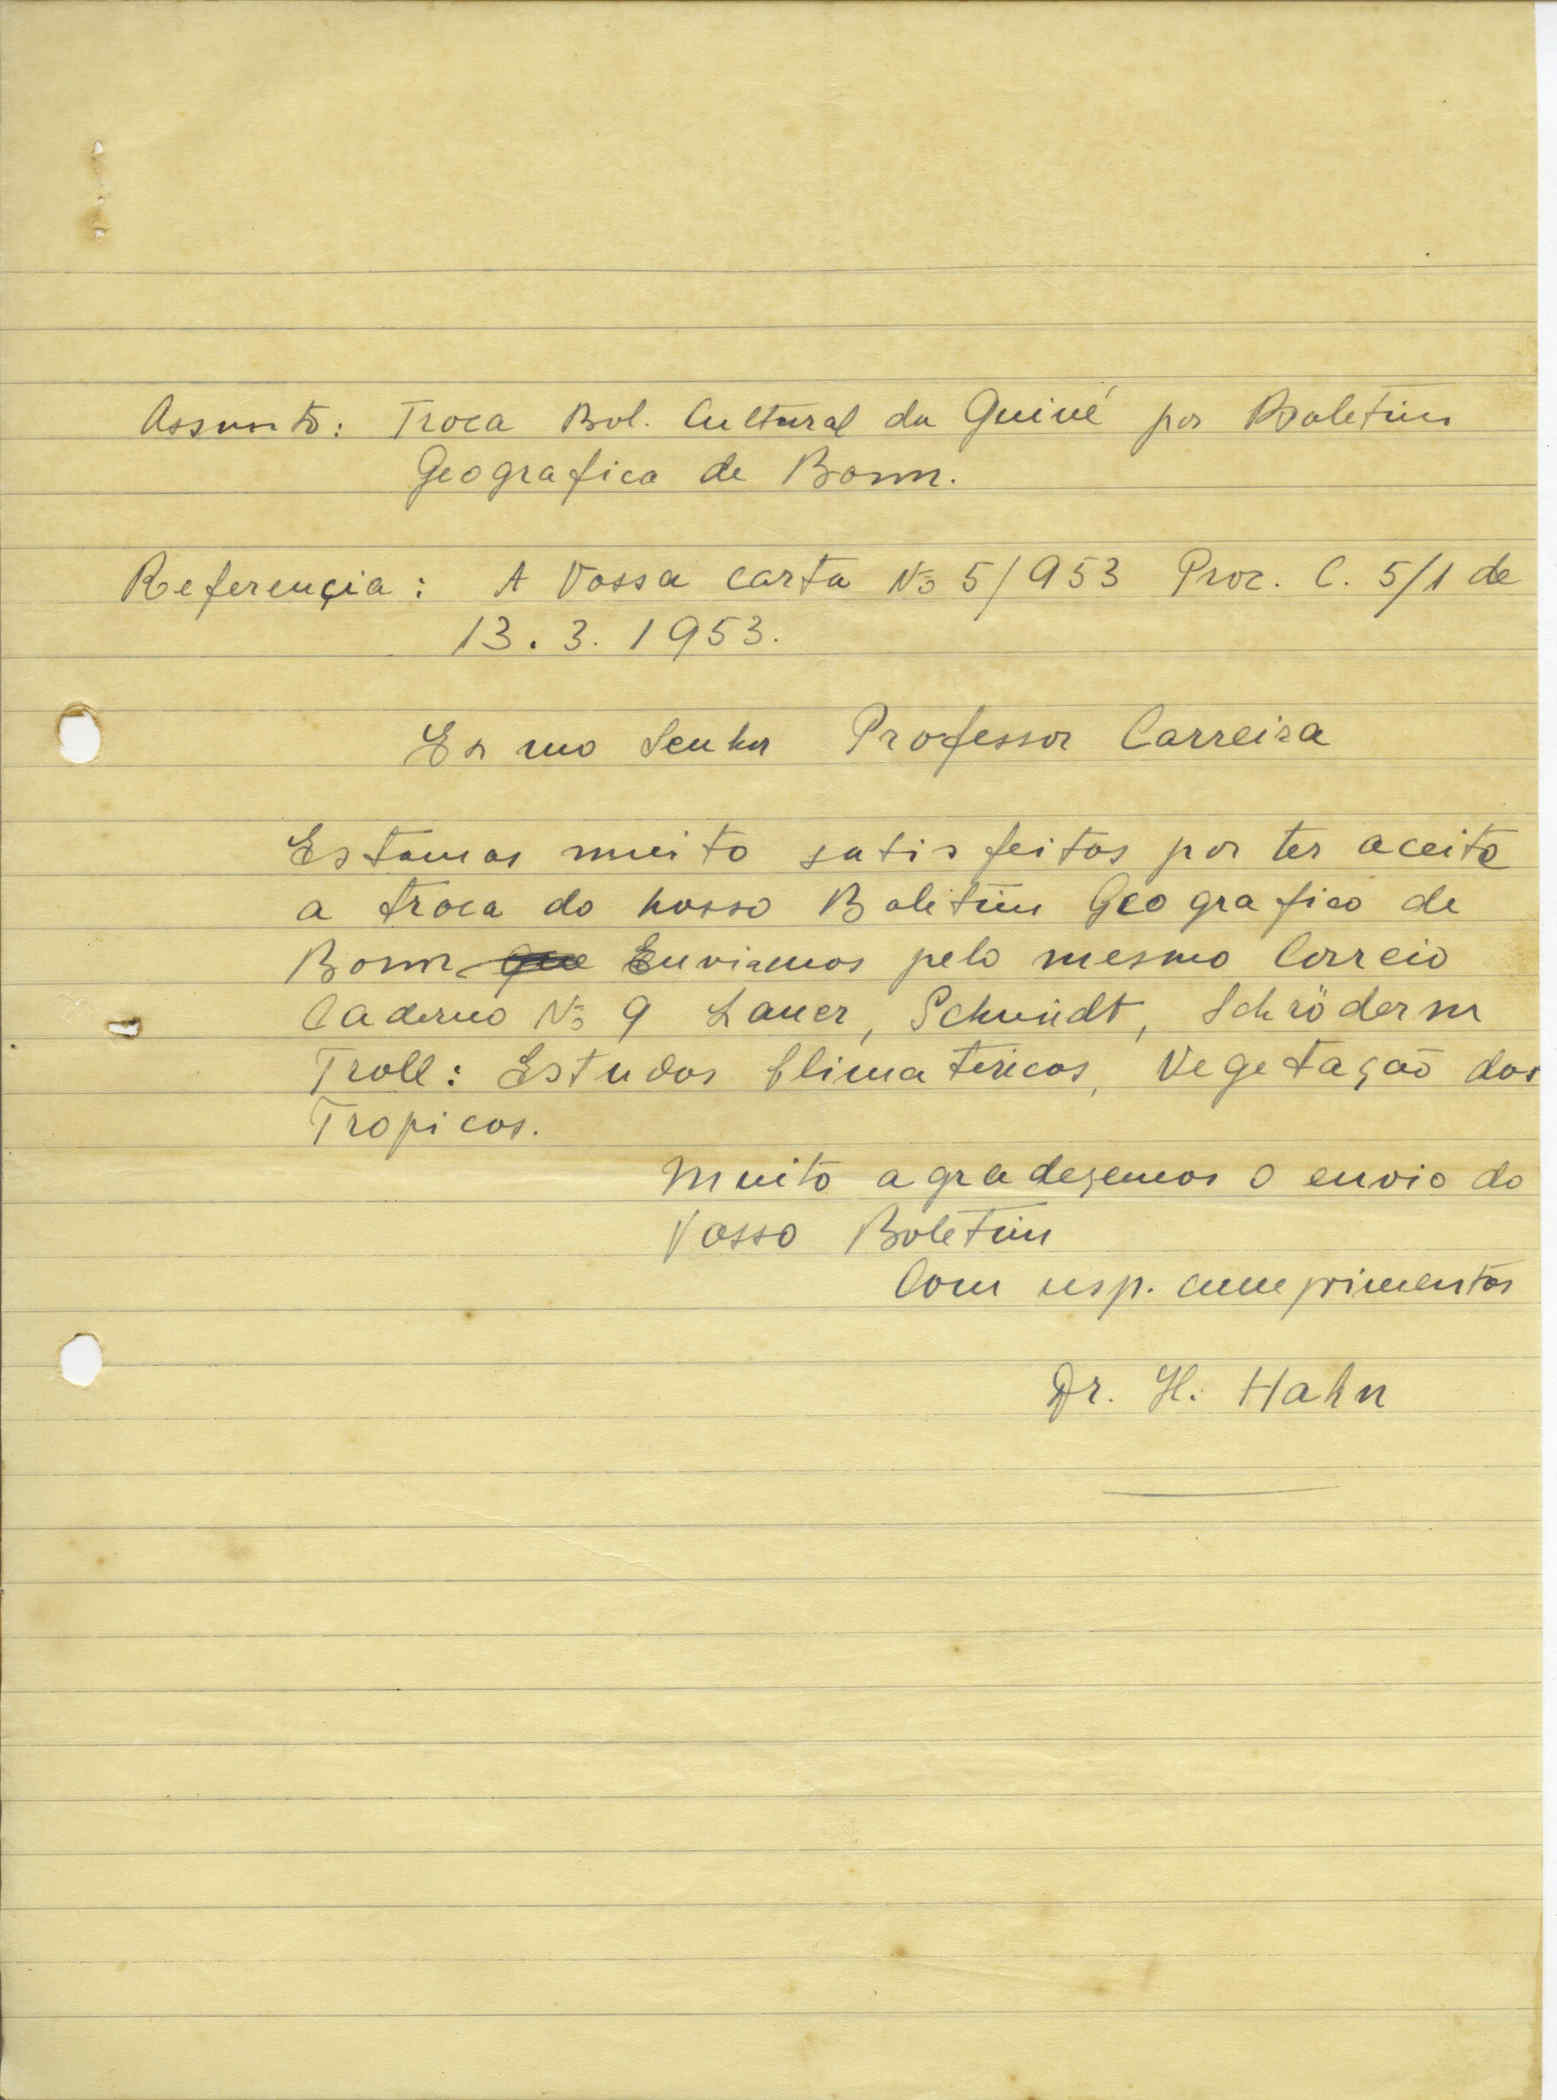 Assunto: Troca Bol. Cultural da Guiné por Boletim
Geografica de Bonn.
Referençia: A Vossa carta No 5/953 Proc. C. 5/1 de
13.3.1953.
Ex mo Senhor Professor Carreira
Estamos muito satisfeitos por ter aceite
a troca do nosso Boletim Geografico de
Bonn Enviamos pelo mesmo Correio
Caderno No 9 Lauer, Schmidt, Schröder
Troll: Estudos Vegetação dos
Tropicos.
Muito agradeçemos o envio do
Vosso Boletim
Com resp. cumprimentos
Dr. H. Hahn